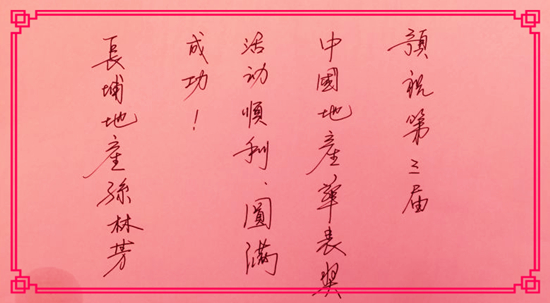 預祝第三届
中國地產華表奨
活动順利、圓滿
成功！
長埔地產孫林芳